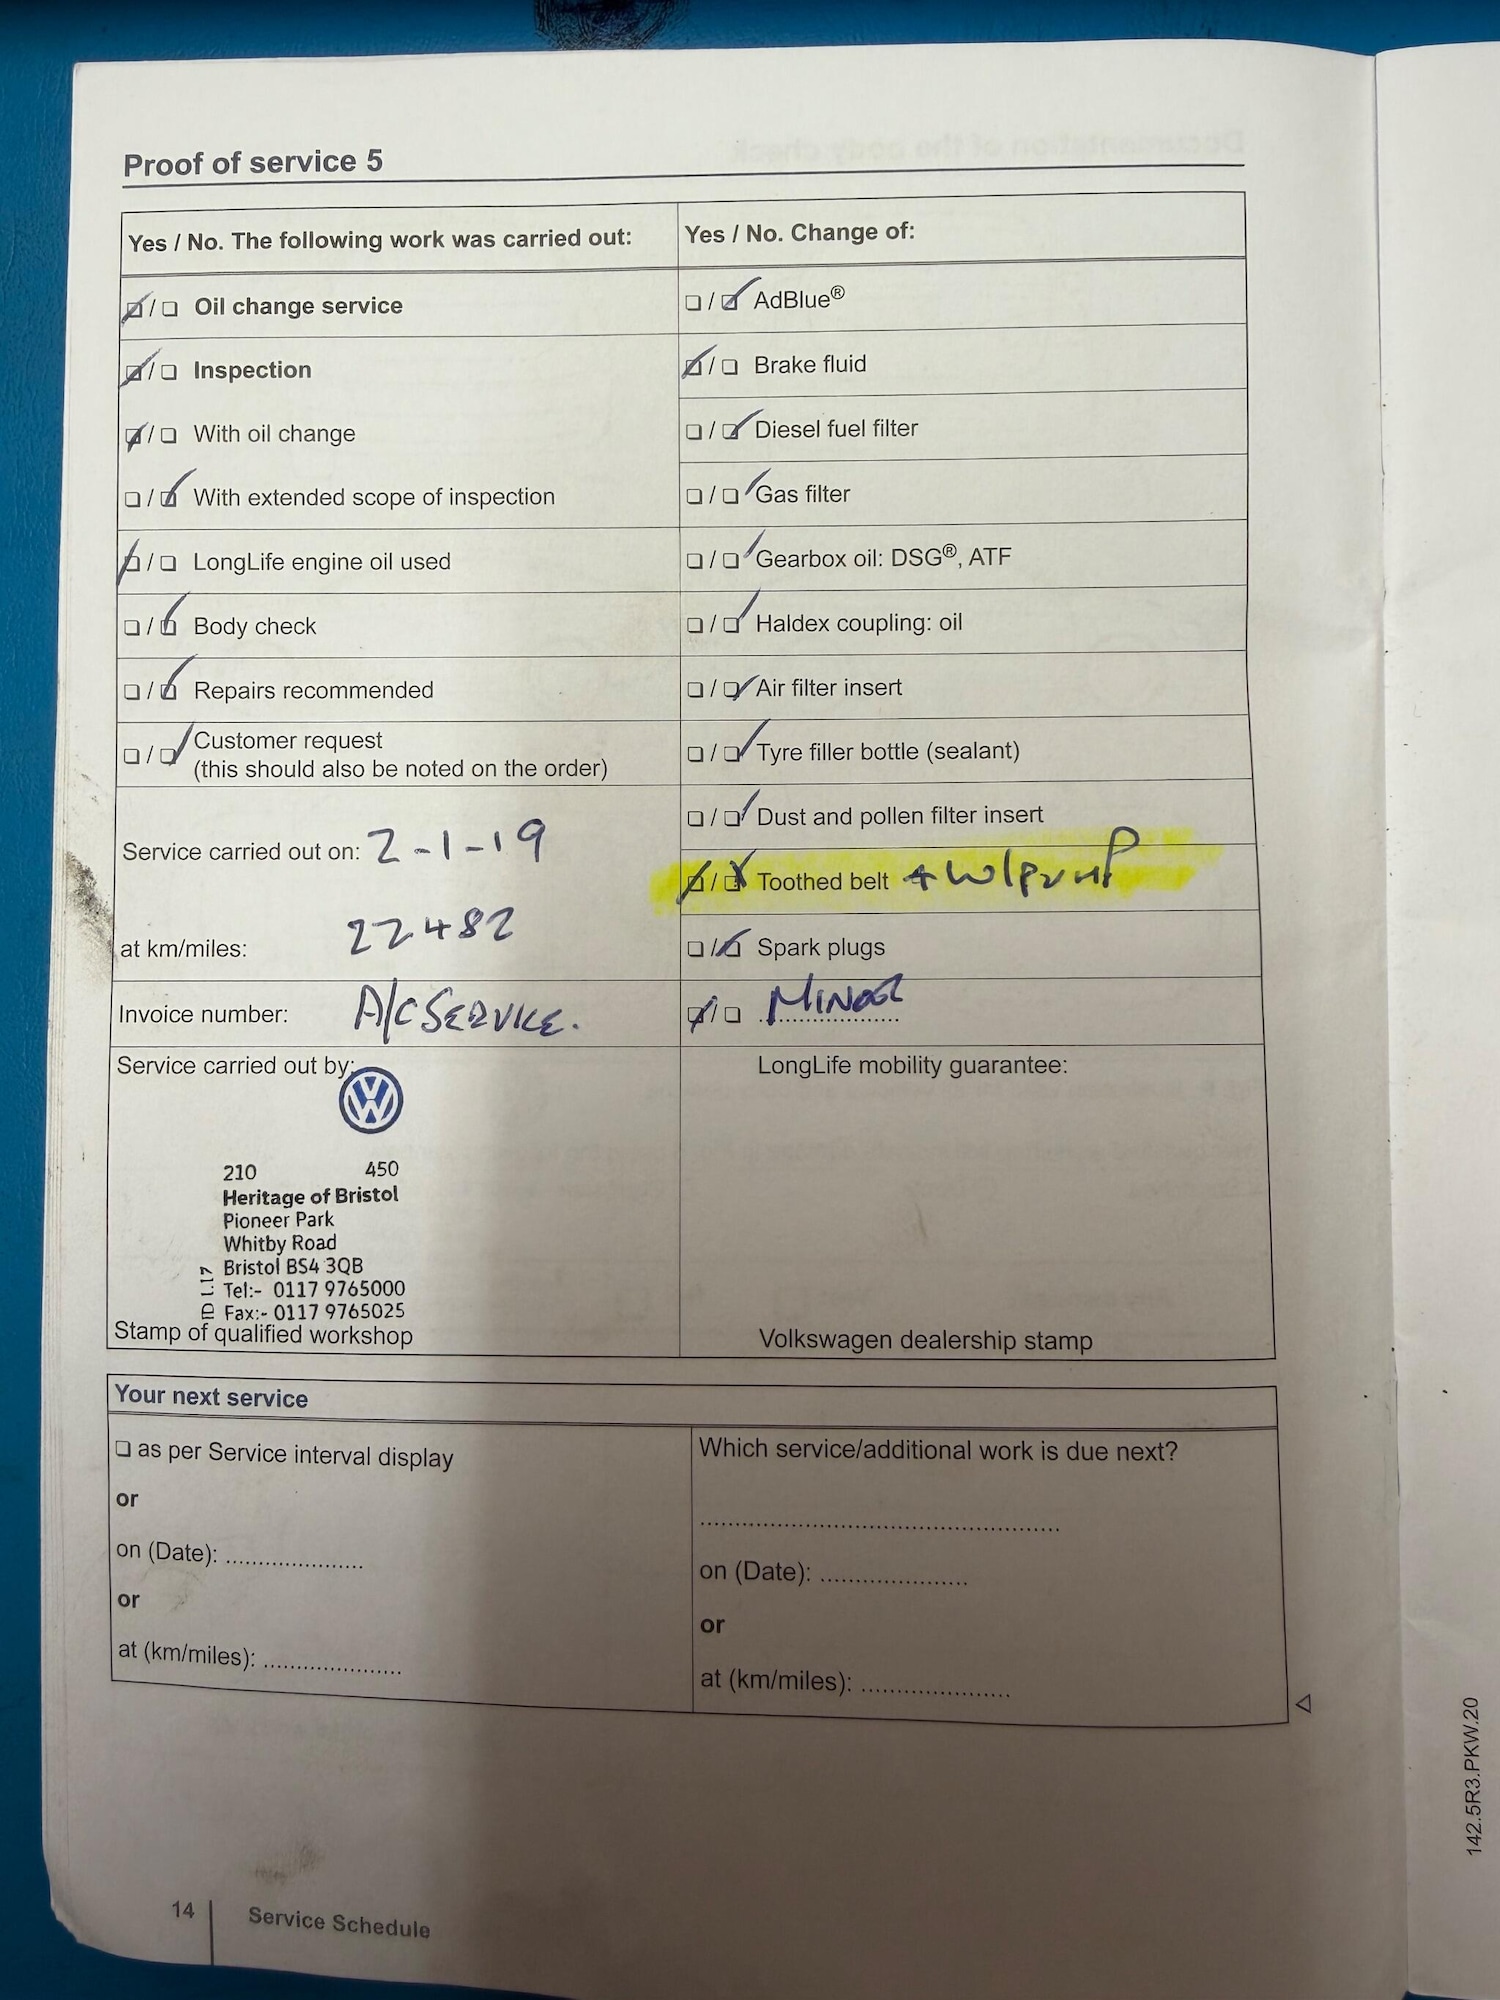 Proof of service 5
Yes / No. The following work was carried out:
Yes / No. Change of:
❏ / ❏ Oil change service
❏ / ❏ Inspection
❏ / ❏ With oil change
❏ / ❏ With extended scope of inspection
❏ / ❏ LongLife engine oil used
❏ / ❏ Body check
❏ / ❏ Repairs recommended
❏ / ❏ Customer request
(this should also be noted on the order)
Service carried out on: 2-1-19
at km/miles: 22482
Invoice number: A/C SERVICE.
❏ / ❏ AdBlue®
❏ / ❏ Brake fluid
❏ / ❏ Diesel fuel filter
❏ / ❏ Gas filter
❏ / ❏ Gearbox oil: DSG®, ATF
❏ / ❏ Haldex coupling: oil
❏ / ❏ Air filter insert
❏ / ❏ Tyre filler bottle (sealant)
❏ / ❏ Dust and pollen filter insert
❏ / ❏ Toothed belt + W/PUMP
❏ / ❏ Spark plugs
❏ / ❏ MINOR
Service carried out by:
VW
210 450
Heritage of Bristol
Pioneer Park
Whitby Road
Bristol BS4 3QB
Tel:- 0117 9765000
Fax:- 0117 9765025
ID 1.17
Stamp of qualified workshop
LongLife mobility guarantee:
Volkswagen dealership stamp
Your next service
❏ as per Service interval display
or
on (Date): ....................
or
at (km/miles): ....................
Which service/additional work is due next?
....................................................
on (Date): ......................
or
at (km/miles): ......................
14 | Service Schedule
142.5R3.PKW.20